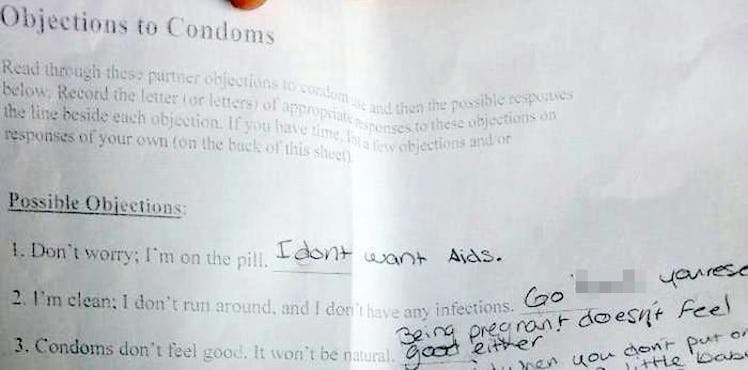 Objections to Condoms
Read through these partner objections to condom use and then the possible responses
below. Record the letter (or letters) of appropriate responses to these objections on
the line beside each objection. If you have time, list a few objections and/or
responses of your own (on the back of this sheet).
Possible Objections:
1. Don't worry; I'm on the pill. I dont want Aids.
2. I'm clean; I don't run around, and I don't have any infections. Go yourese
Being pregnant doesn't feel
3. Condoms don't feel good. It won't be natural. good either
when you don't put on
little